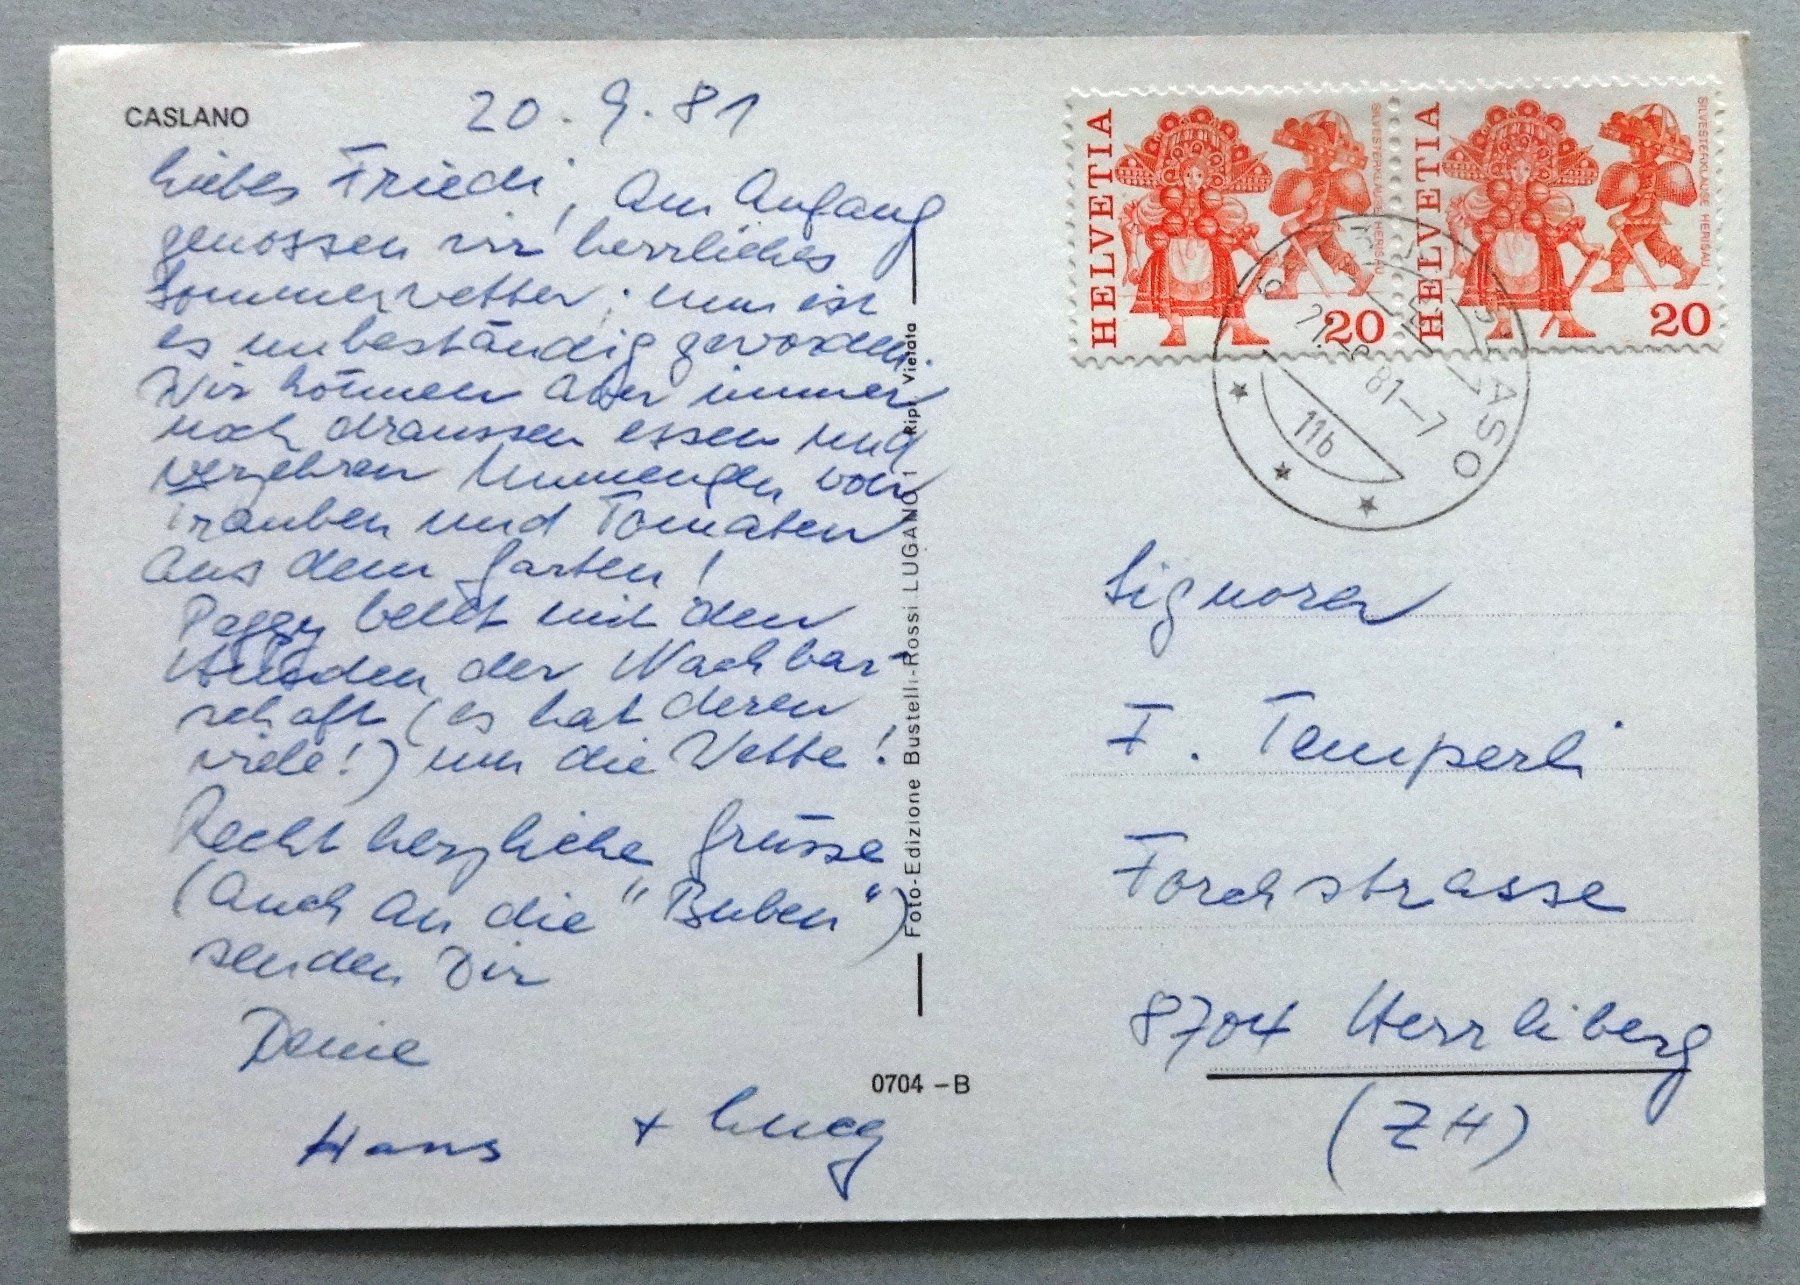 CASLANO
20. 9. 81
Liebes Friedi, Am Anfang
genossen wir herrliches
Sommerwetter; nun ist
es unbeständig geworden.
Wir können aber immer
noch draussen essen und
verzehren Unmengen von
Trauben und Tomaten
aus dem Garten!
Peggy bellt mit den
Hunden der Nachbar-
schaft (es hat deren
viele!) um die Wette!
Recht herzliche Grüsse
(auch an die "Buben")
senden Dir
Deine
Hans + Lucy
Foto-Edizione Bustelli-Rossi LUGANO 1 Ripr. Vietata
0704 – B
HELVETIA
SILVESTERKLÄUSE HERISAU
20
HELVETIA
SILVESTERKLÄUSE HERISAU
20
81–7
11b
Signora
F. Temperli
Forchstrasse
8704 Herrliberg
(ZH)